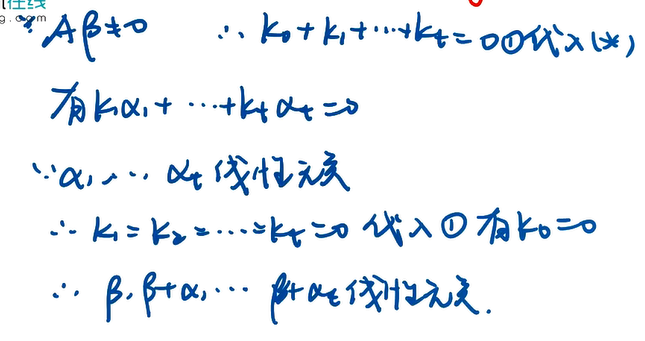 在线
g.com
∵ Aβ≠0 ∴ k₀+k₁+…+kₜ=0 ① 代入(*)
有k₁α₁+…+kₜαₜ=0
∵ α₁,… αₜ 线性无关
∴ k₁=k₂=…=kₜ=0 代入 ① 有k₀=0
∴ β, β+α₁… β+αₜ 线性无关.